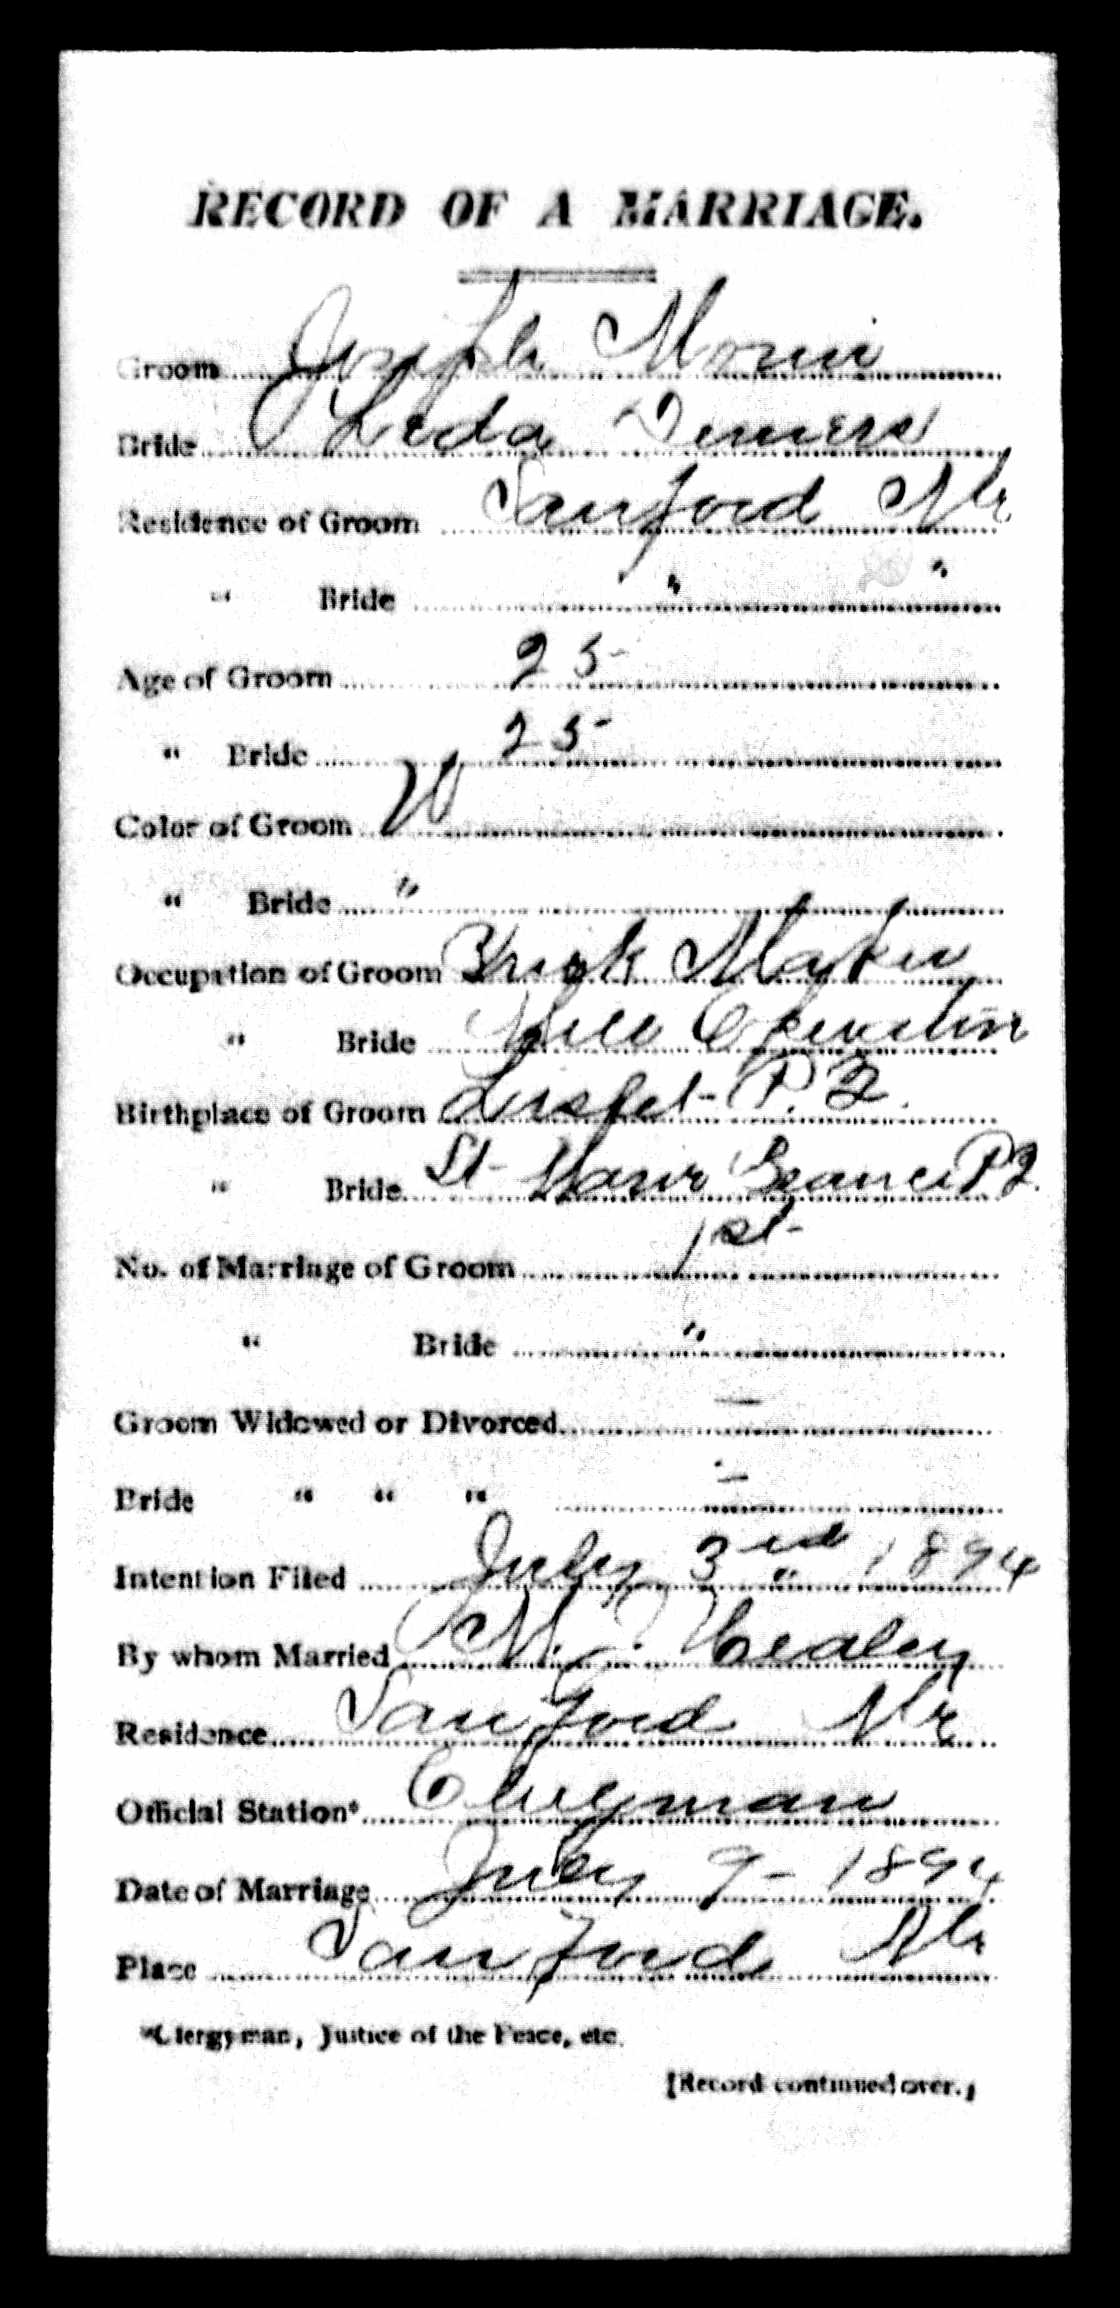 RECORD OF A MARRIAGE.
Groom Joseph Morin
Bride Leda Demers
Residence of Groom Sanford Me
" Bride " "
Age of Groom 25
" Bride 25
Color of Groom W
" Bride "
Occupation of Groom Brick Maker
" Bride Mill
Birthplace of Groom P.Q.
" Bride St P.Q.
No. of Marriage of Groom 1st
" Bride "
Groom Widowed or Divorced —
Bride " " " —
Intention Filed July 3rd 1894
By whom Married Healey
Residence Sanford Me
Official Station* Clergyman
Date of Marriage July 9 - 1894
Place Sanford Me
*Clergyman, Justice of the Peace, etc.
[Record continued over.]